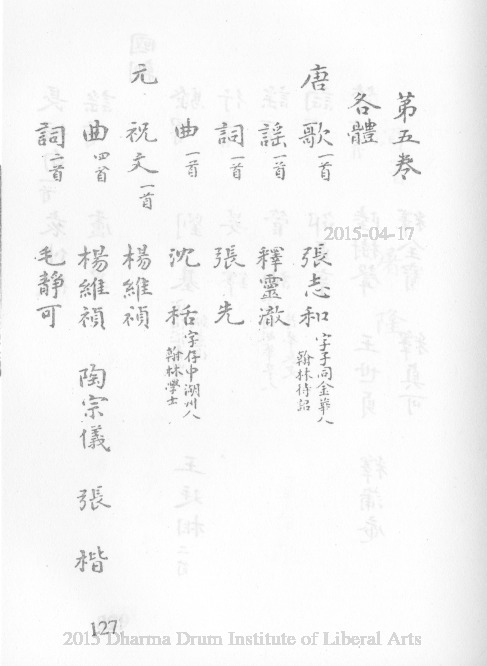 第五卷
各體
唐 歌一首 張志和 字子同金華人翰林待詔
謠一首 釋靈澈
詞一首 張先
曲一首 沈括 字存中湖州人翰林學士
元 祝文一首 楊維禎
曲四首 楊維禎 陶宗儀 張楷
詞二首 毛靜可
127
2015-04-17
2015 Dharma Drum Institute of Liberal Arts